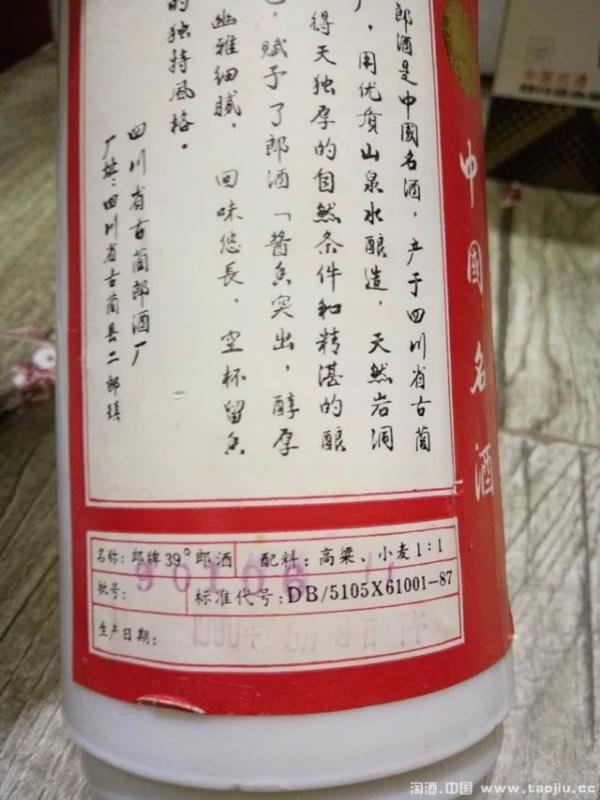 中國名酒
郎酒是中國名酒，产于四川省古蔺
厂，用优质山泉水酿造，天然岩洞
得天独厚的自然条件和精湛的酿
，赋予了郎酒「酱香突出，醇厚
幽雅细腻，回味悠長，空杯留香
的独特风格。
四川省古蔺郎酒厂
厂址：四川省古蔺县二郎镇
名称：郎牌39°郎酒 配料：高粱、小麦1:1
批号： 标准代号：DB/5105X61001-87
生产日期：
淘酒.中国 www.taojiu.cc